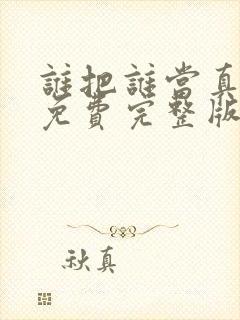 誰把誰當真
免費完整版
秋真